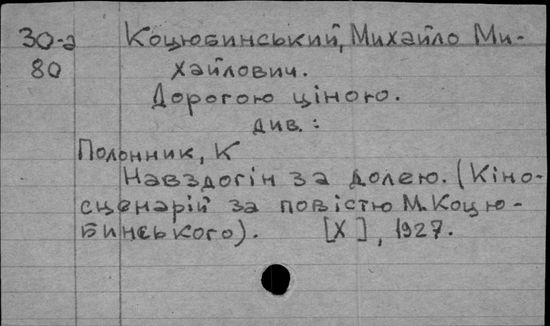 30-а Коцюбинський, Михайло Ми-
80 хайлович.
Дорогою ціною.
див.:
Полонник, К
Навздогін за долею. (Кіно-
сценарій за повістю М. Коцю-
бинського). [Х], 1927.